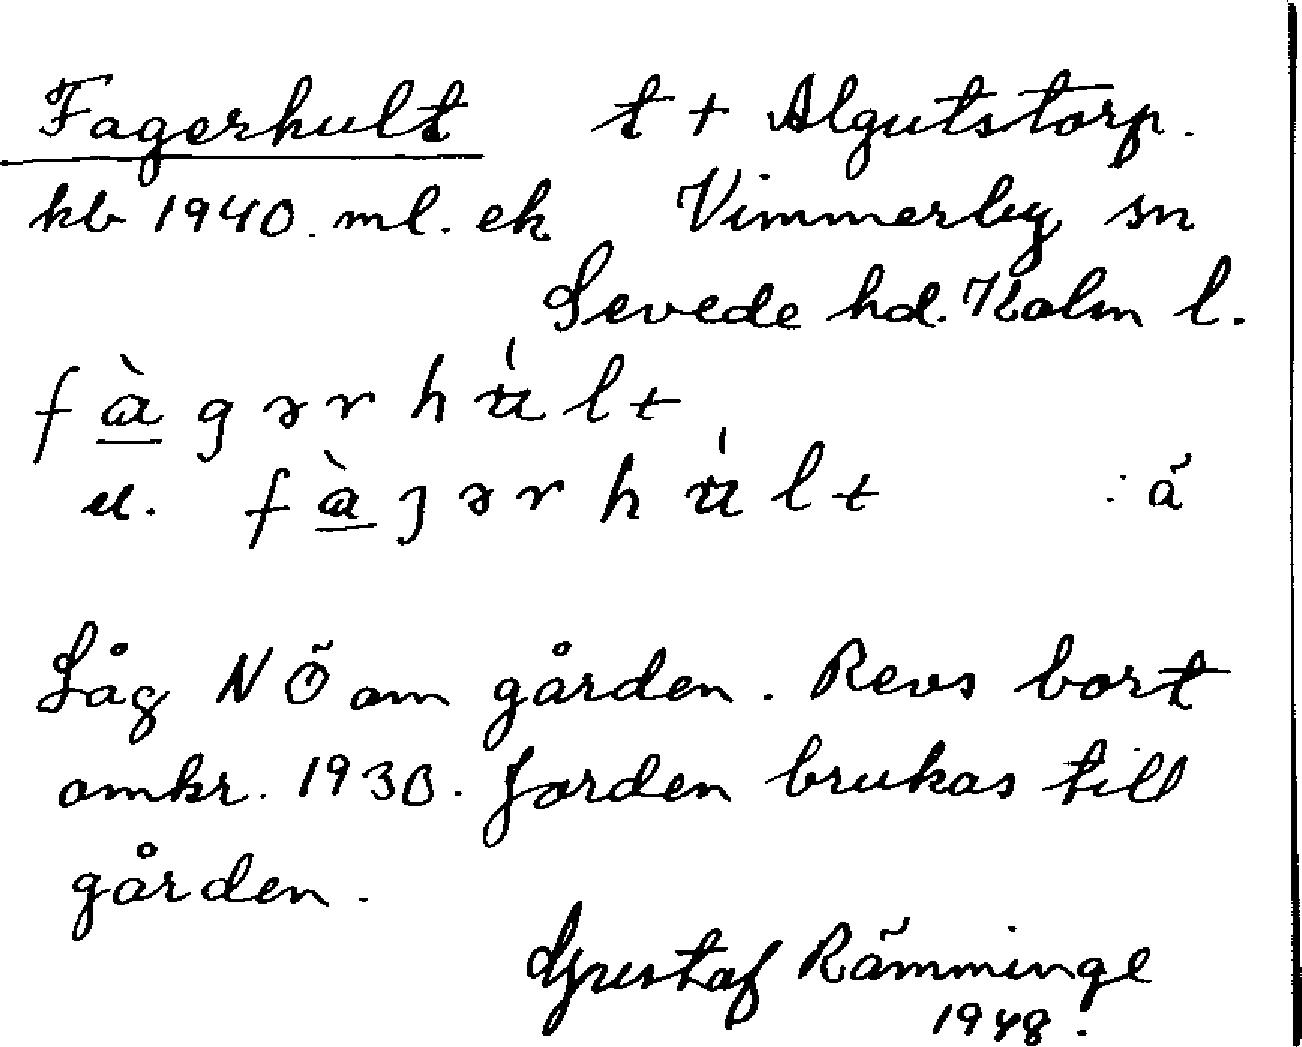 Fagerhult t + Algutstorp.
kb 1940. ml. ek Vimmerby sn
Sevede hd. Kalm l.
fàgərhúlt
el. fàȷərhúlt : ä
Låg NÖ om gården. Revs bort
omkr. 1930. Jorden brukas till
gården.
Gustaf Rämminge
1948.